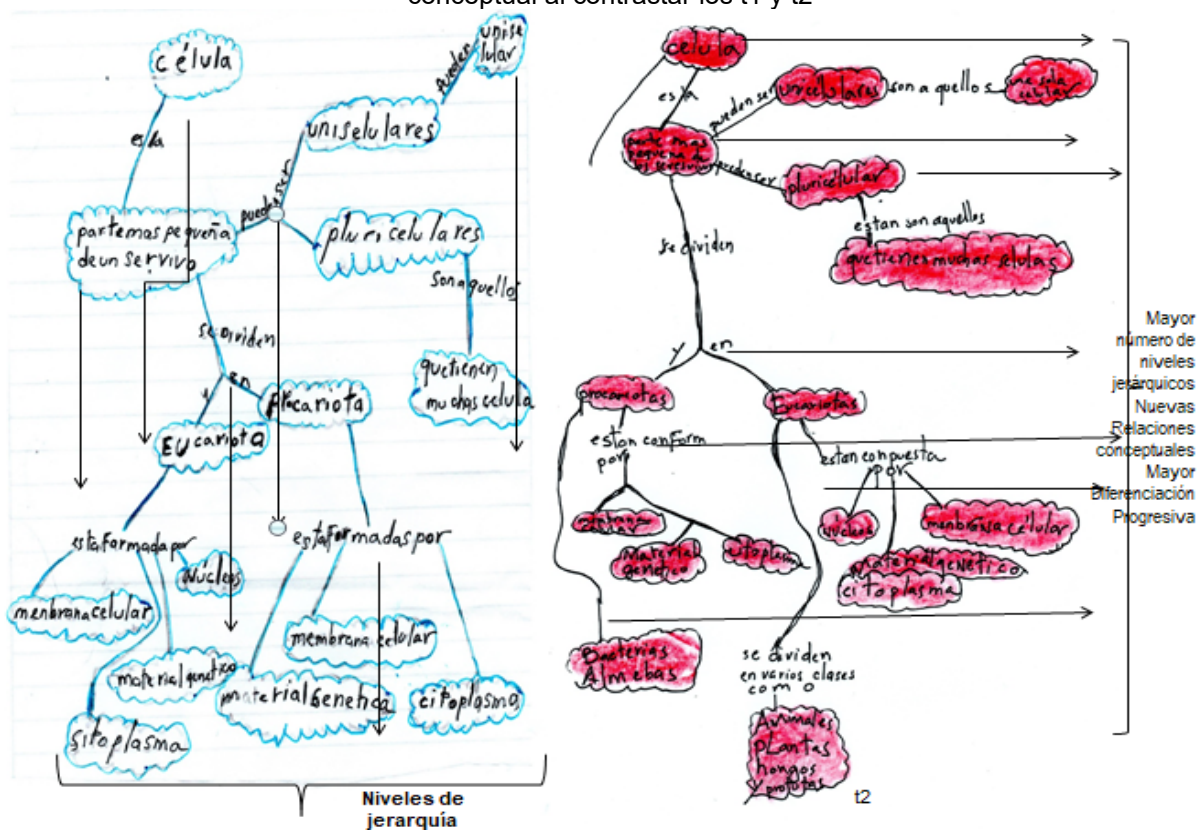 conceptual al contrastar los t1 y t2
célula
es la
partemas pequeña
de un ser vivo
pueden ser
uniselulares
pueden
unise
lular
pluricelulares
son aquellos
quetienen
muchas celula
se dividen
y
en
EUcariota
procariota
esta formada por
menbrana celular
sitoplasma
material genetico
Núcleos
esta formadas por
material Genetica
membrana celular
citoplasma
Niveles de
jerarquía
celula
es la
parte mas
pequeña de
los seres vivos
pueden ser
unicelulares
son a quellos
una sola
celular
pueden ser
pluricélular
estan son aquellos
quetienen muchas selulas
se dividen
y
en
procariotas
estan conform
por
menbrana
celular
Material
genetico
citoplasma
Bacterias
Almebas
Eucariotas
estan compuesta
por
Núcleos
menbransa célular
material genético
citoplasma
se dividen
en varios clases
como
Animales
plantas
hongos
y protutas
t2
Mayor
número de
niveles
jerárquicos
Nuevas
Relaciones
conceptuales
Mayor
Diferenciación
Progresiva